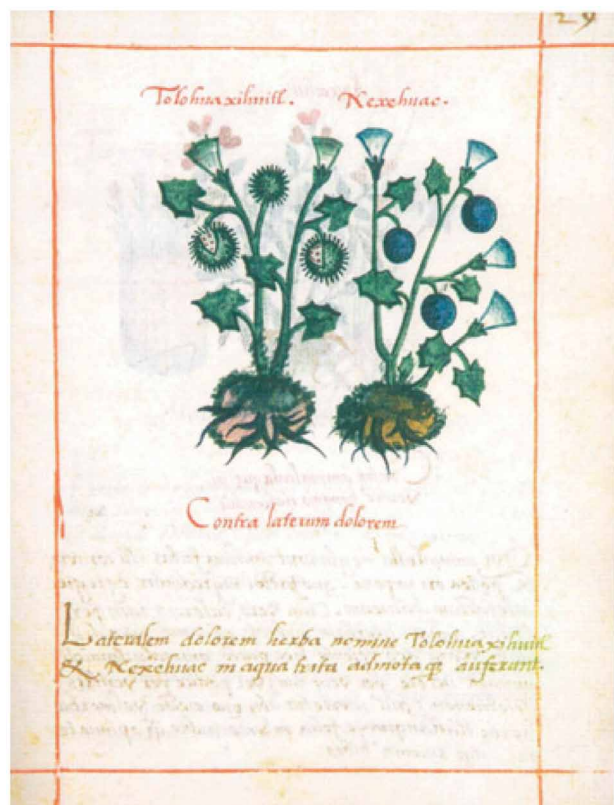 29
Tolohuaxihuitl. Nexehuac.
Contra laterum dolorem
Lateralem dolorem herba nomine Tolohuaxihuitl
& Nexehuac in aqua trita admotaq; auferunt.